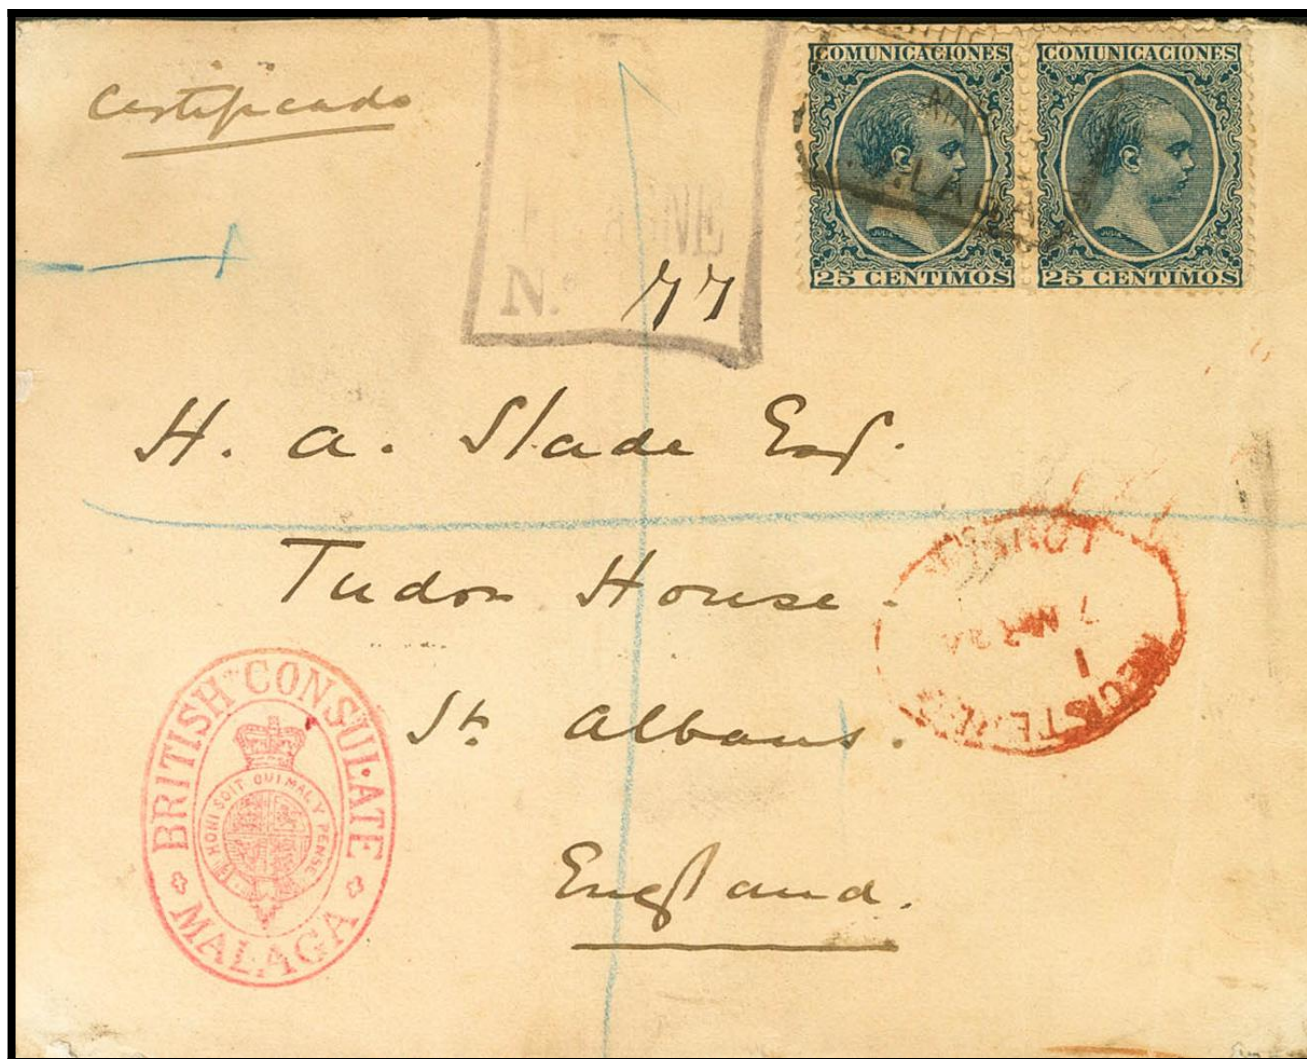 Certificado
COMUNICACIONES
25 CENTIMOS
COMUNICACIONES
25 CENTIMOS
N.º 77
H. A. Slade Esq.
Tudor House.
St. Albans.
England.
BRITISH CONSULATE
HONI SOIT QUI MAL Y PENSE
MALAGA